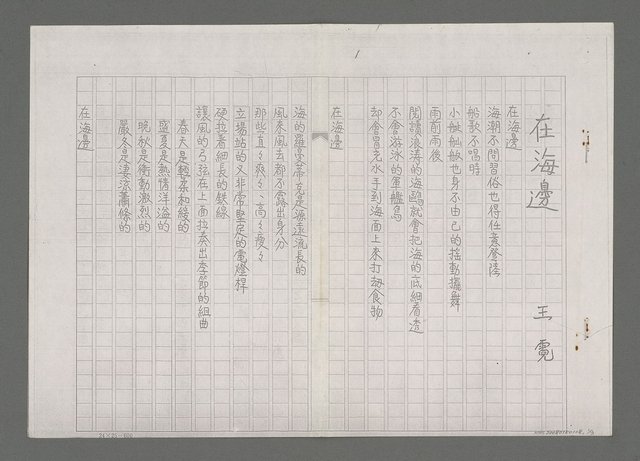 在海邊
王霓
在海邊
海潮不問習俗也得任意登陸
船歌不唱時
小舢舨也身不由己的搖動擺舞
雨前雨後
閱讀浪濤的海鷗就會把海的底細看透
不會游泳的軍艦鳥
却會冒充水手到海面上來打劫食物
在海邊
海的羅曼蒂克是源遠流長的
風來風去都不露出身分
那些直々爽々、高々瘦々
立場站的又非常堅定的電燈桿
硬拉着細長的鉄線
讓風的弓弦在上面拉奏出季節的組曲
春天是輕柔和緩的
盛夏是熱情洋溢的
晚秋是衝動激烈的
嚴冬是淒涼蕭條的
在海邊
24×25=600